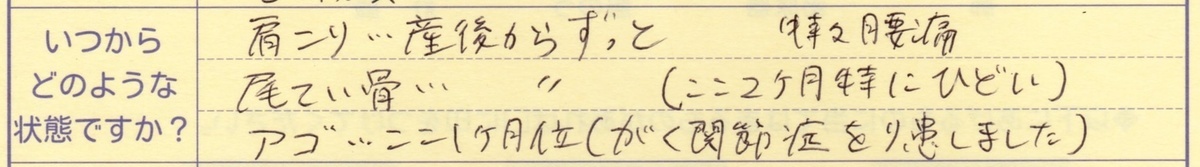 いつから
どのような
状態ですか？
肩こり…産後からずっと　　特に腰痛
尾てい骨…　〃　　(ここ2ヶ月特にひどい)
アゴ…ここ1ヶ月位(がく関節症をり患しました)